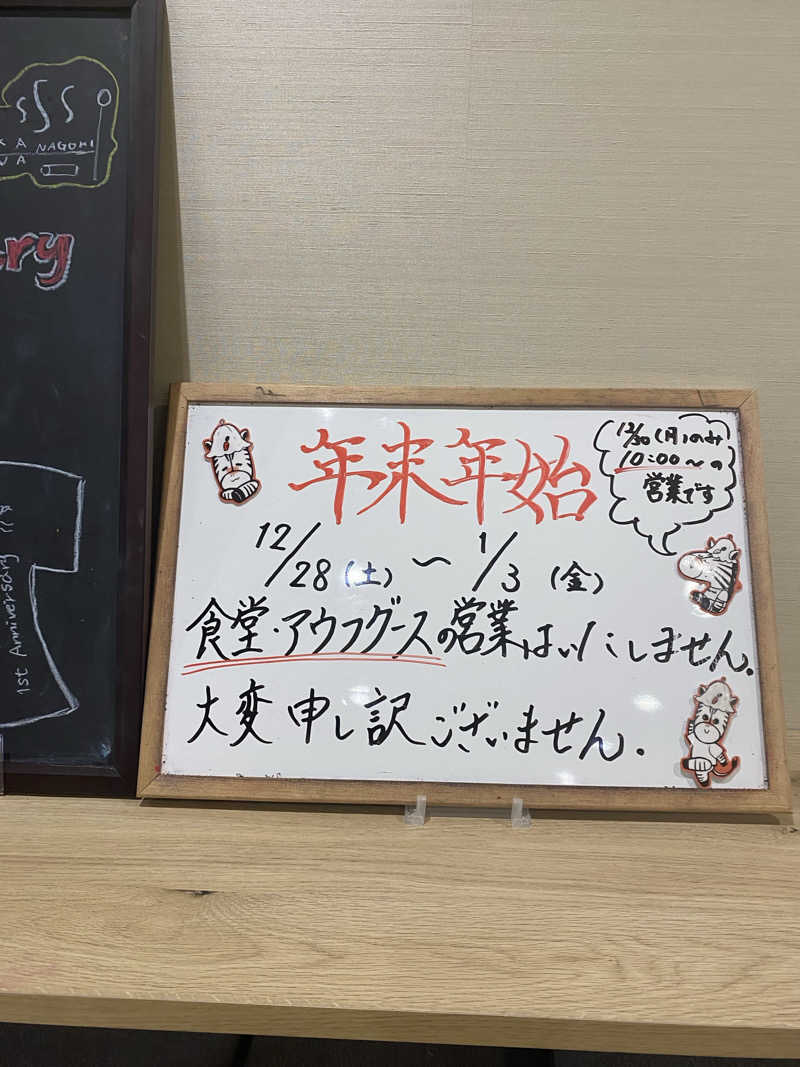 NAGOMI
ry
1st Anniversary
年末年始
12/30(月)のみ
10:00〜の
営業です
12/28(土)〜1/3(金)
食堂・アウフグースの営業はいたしません.
大変申し訳ございません.